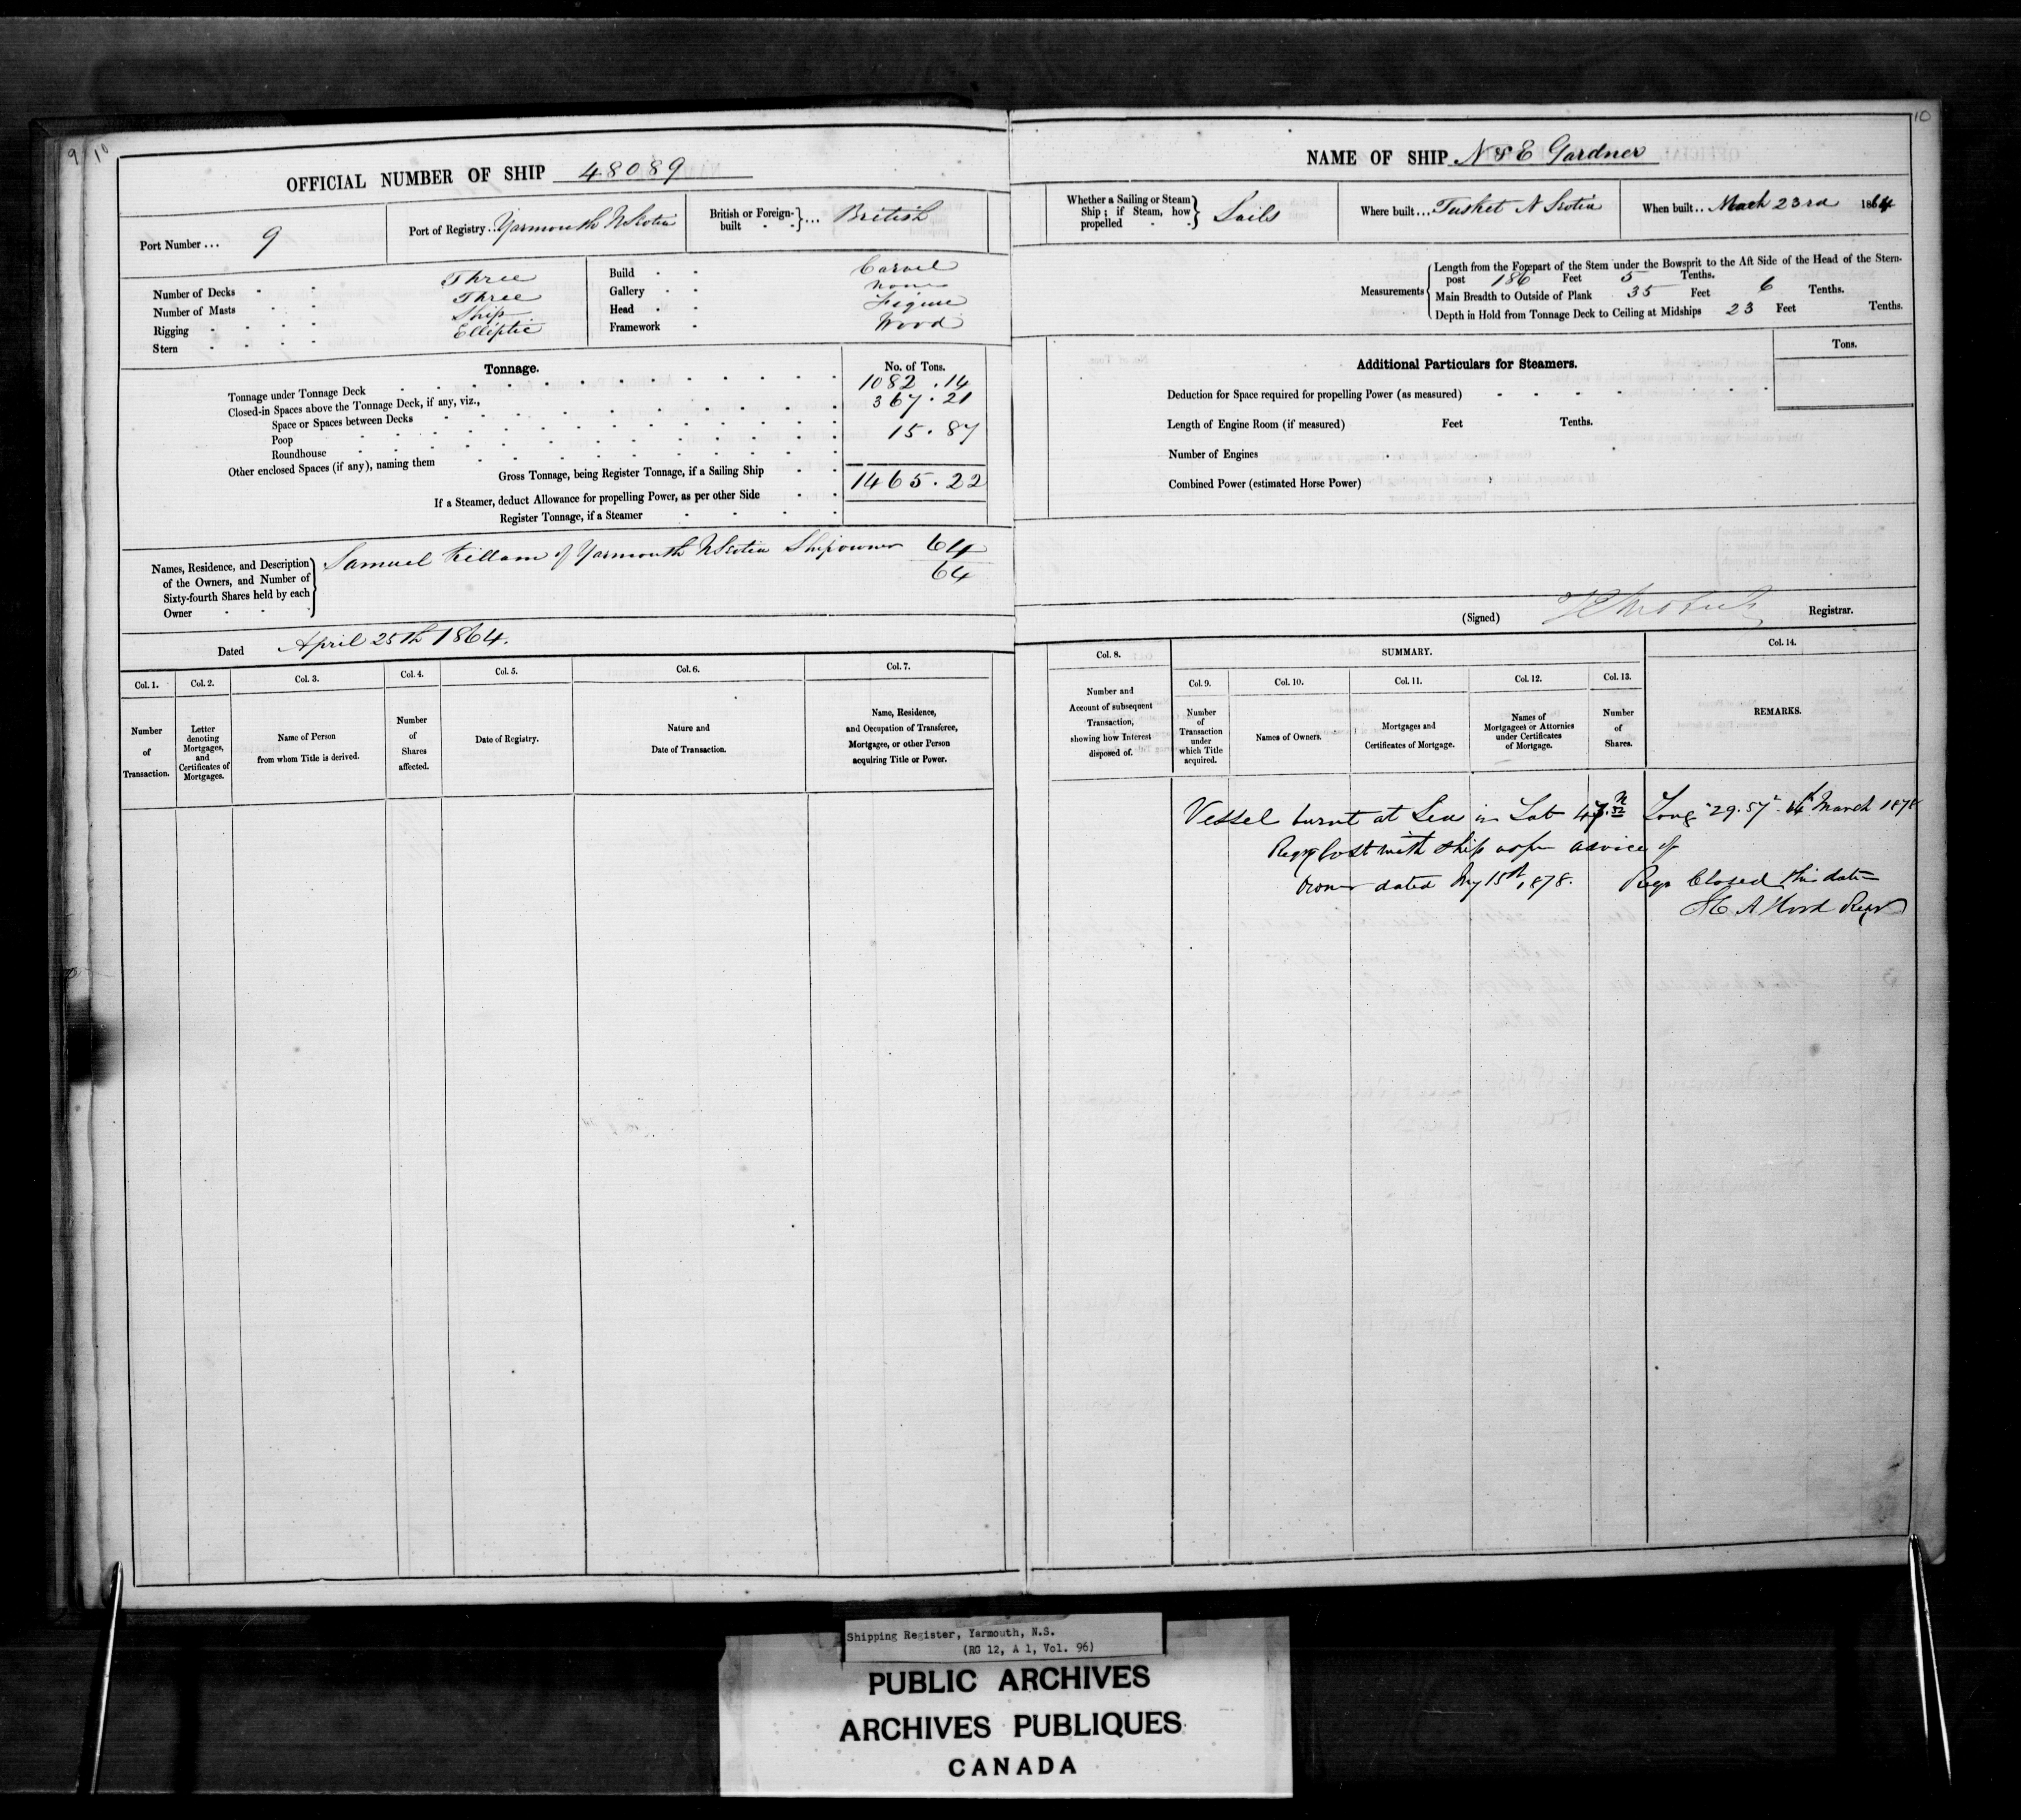 9 10
OFFICIAL NUMBER OF SHIP 48089
Port Number ... 9
Port of Registry .. Yarmouth NScotia
British or Foreign-built ... British
Number of Decks Three
Number of Masts Three
Rigging Ship
Stern Elliptic
Build Carvel
Gallery None
Head Figure
Framework Wood
Tonnage.
No. of Tons.
Tonnage under Tonnage Deck 1082.14
Closed-in Spaces above the Tonnage Deck, if any, viz.,
Space or Spaces between Decks 367.21
Poop
Roundhouse 15.87
Other enclosed Spaces (if any), naming them
Gross Tonnage, being Register Tonnage, if a Sailing Ship 1465.22
If a Steamer, deduct Allowance for propelling Power, as per other Side
Register Tonnage, if a Steamer
Names, Residence, and Description
of the Owners, and Number of
Sixty-fourth Shares held by each
Owner
Samuel Killam of Yarmouth NScotia Shipowner 64
64
Dated April 25th 1864.
Col. 1. Col. 2. Col. 3. Col. 4. Col. 5. Col. 6. Col. 7.
Number of Transaction.
Letter denoting Mortgages, and Certificates of Mortgages.
Name of Person from whom Title is derived.
Number of Shares affected.
Date of Registry.
Nature and Date of Transaction.
Name, Residence, and Occupation of Transferee, Mortgagee, or other Person acquiring Title or Power.
10
NAME OF SHIP N & E Gardner
Whether a Sailing or Steam
Ship; if Steam, how
propelled
Sails
Where built ... Tusket N Scotia
When built .. March 23rd 1864
Measurements
Length from the Forepart of the Stem under the Bowsprit to the Aft Side of the Head of the Stern-
post 186 Feet 5 Tenths.
Main Breadth to Outside of Plank 35 Feet 6 Tenths.
Depth in Hold from Tonnage Deck to Ceiling at Midships 23 Feet Tenths.
Additional Particulars for Steamers.
Tons.
Deduction for Space required for propelling Power (as measured)
Length of Engine Room (if measured) Feet Tenths.
Number of Engines
Combined Power (estimated Horse Power)
(Signed) Registrar.
Col. 8. SUMMARY. Col. 14.
Col. 9. Col. 10. Col. 11. Col. 12. Col. 13.
Number and Account of subsequent Transaction, showing how Interest disposed of.
Number of Transaction under which Title acquired.
Names of Owners.
Mortgages and Certificates of Mortgage.
Names of Mortgagees or Attornies under Certificates of Mortgage.
Number of Shares.
REMARKS.
Vessel burnt at Sea in Lat Long 29.57 March 1878
lost with ship as per advice of
owner dated 15th 1878. Regr Closed this date
Regr
Shipping Register, Yarmouth, N.S.
(RG 12, A 1, Vol. 96)
PUBLIC ARCHIVES
ARCHIVES PUBLIQUES
CANADA